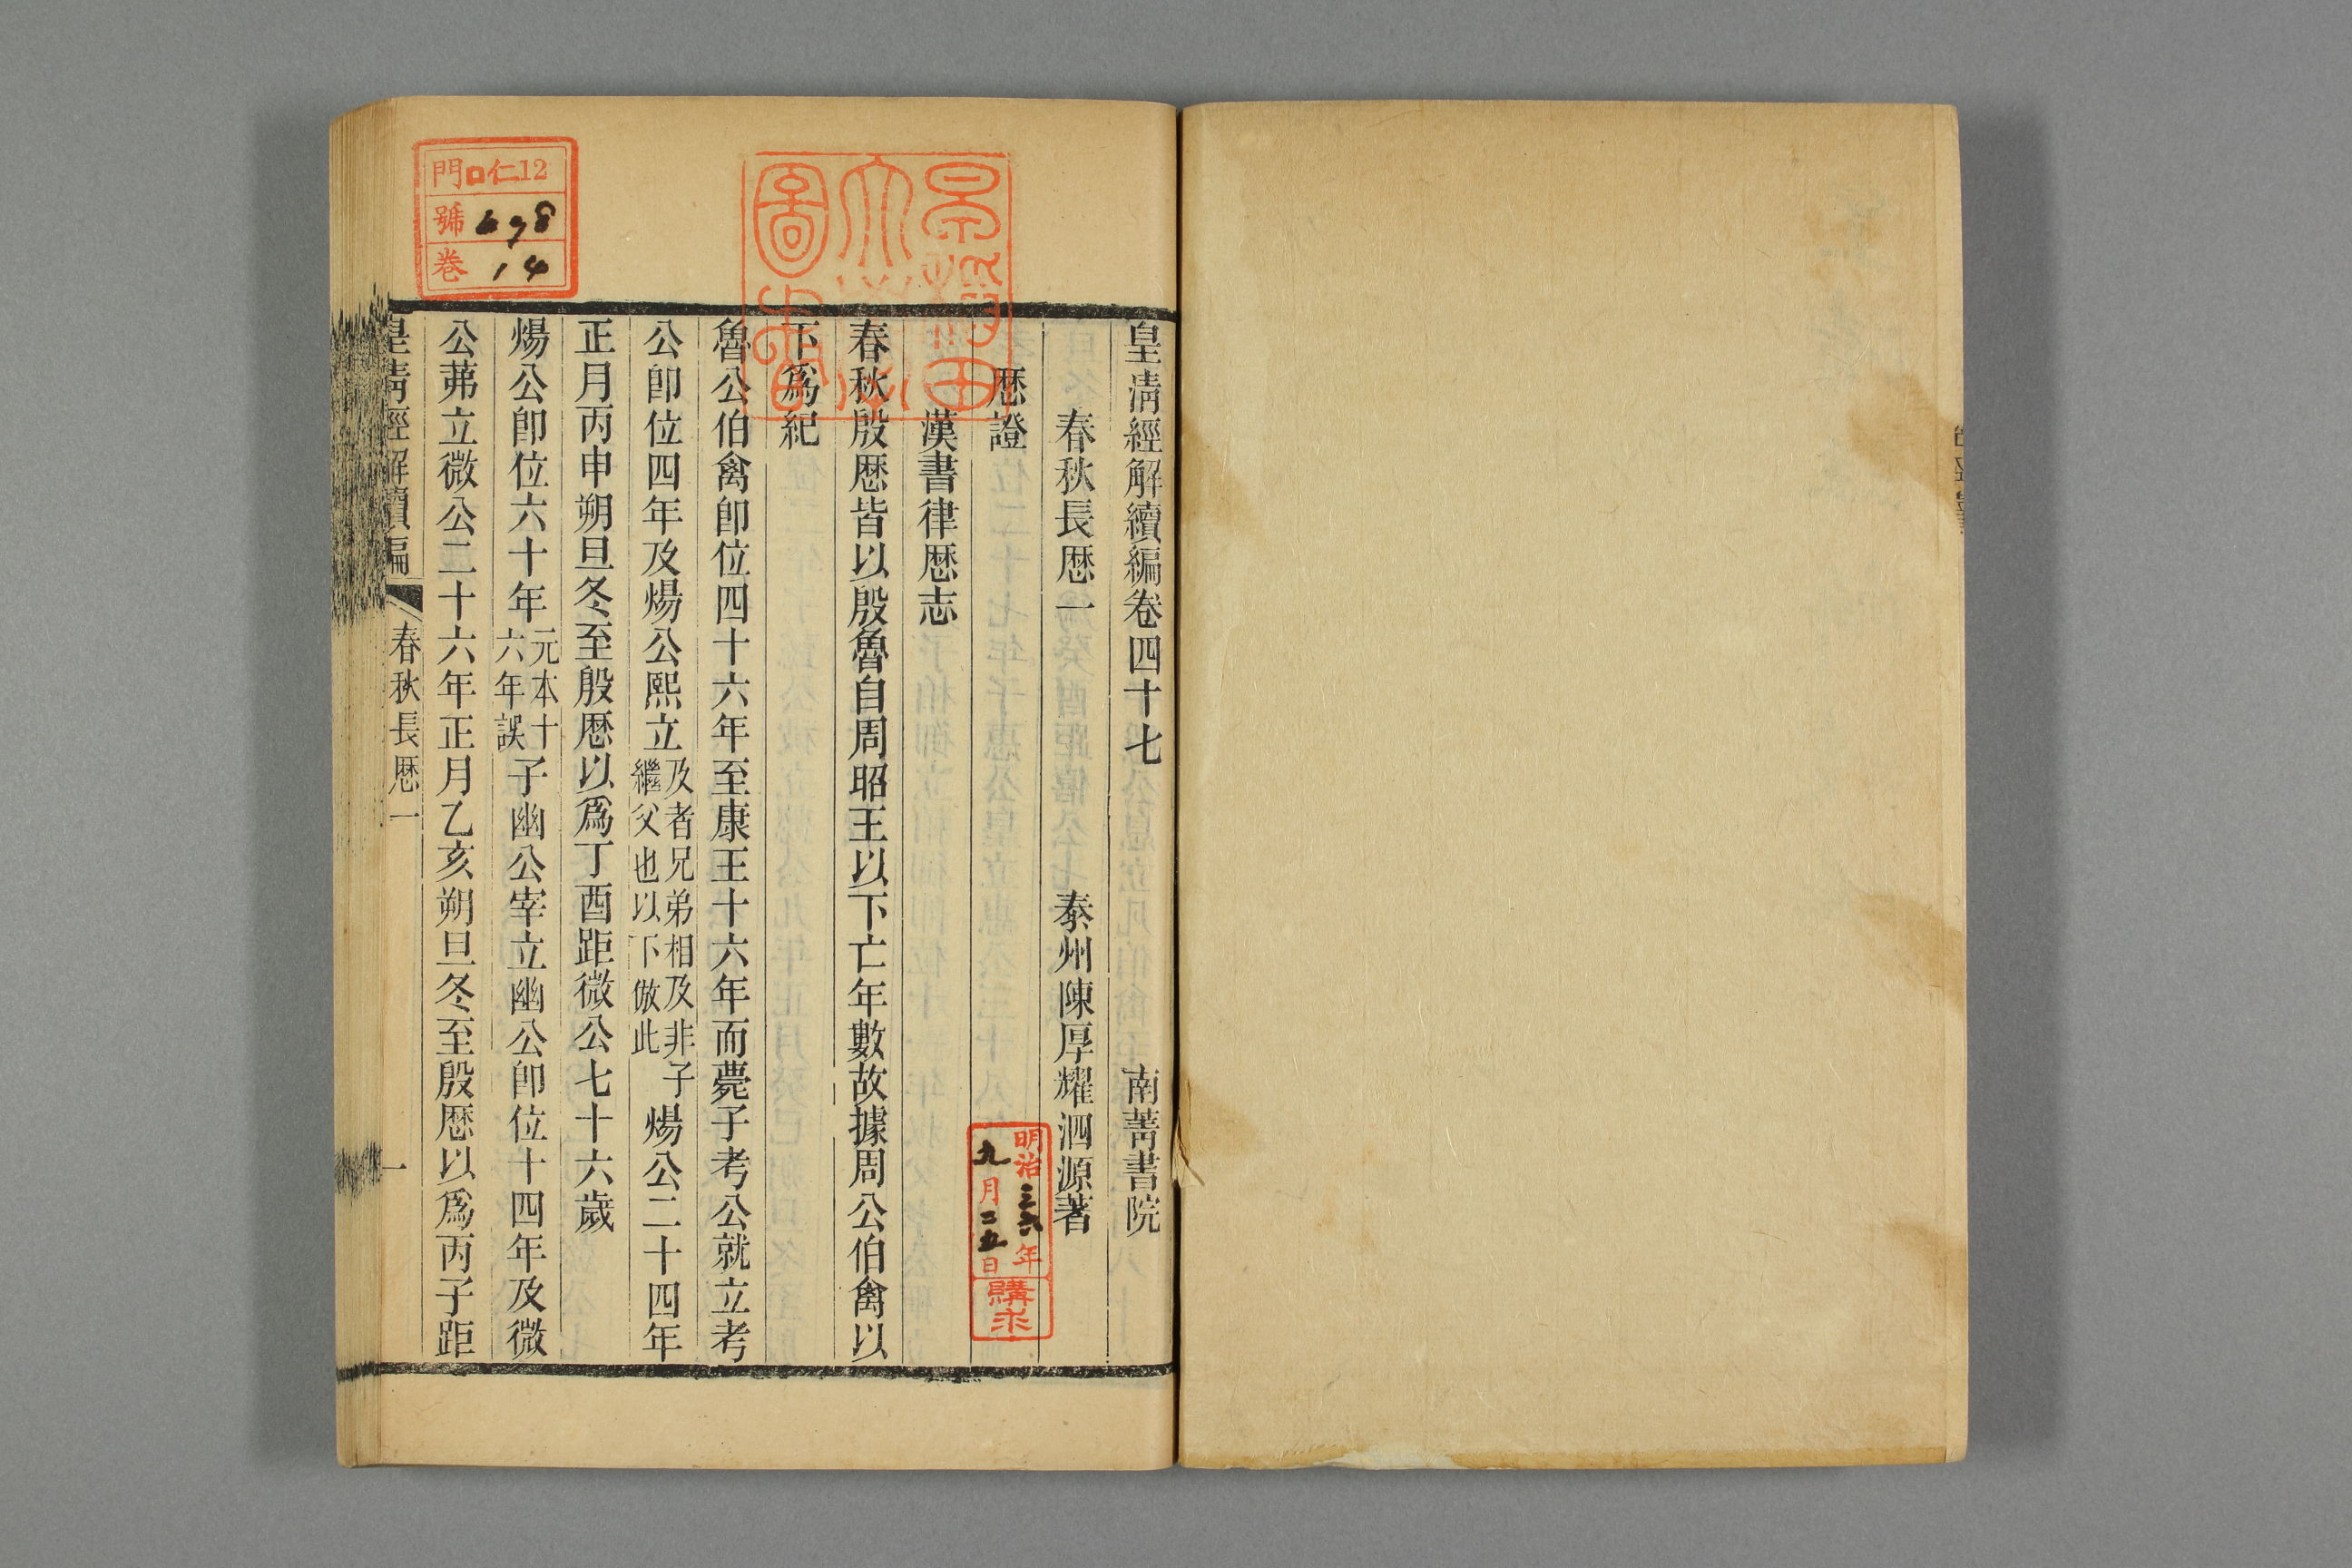 皇淸經解續編卷四十七 南菁書院
春秋長厯一 泰州陳厚耀泗源著
厯證
漢書律厯志
春秋殷厯皆以殷魯自周昭王以下亡年數故據周公伯禽以
下爲紀
魯公伯禽卽位四十六年至康王十六年而薨子考公就立考
公卽位四年及煬公熙立及者兄弟相及非子繼父也以下倣此煬公二十四年
正月丙申朔旦冬至殷厯以爲丁酉距微公七十六歲
煬公卽位六十年元本十六年誤子幽公宰立幽公卽位十四年及微
公茀立微公二十六年正月乙亥朔旦冬至殷厯以爲丙子距
皇淸經解續編 春秋長厯一 一
門口仁12
號 698
卷 14
明治三六年
九月二五日
購求